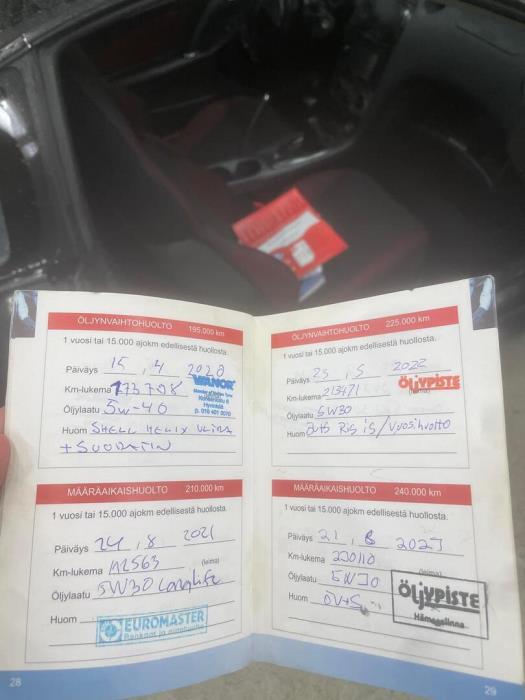 ÖLJYNVAIHTOHUOLTO 195.000 km
1 vuosi tai 15.000 ajokm edellisestä huollosta.
Päiväys 15 . 4 2020
Km-lukema 173708
VIANOR
Hyvinkää
p. 010 401 3070
Öljylaatu 5W-40
Huom SHELL HELIX ULTRA
+ SUODATIN
MÄÄRÄAIKAISHUOLTO 210.000 km
1 vuosi tai 15.000 ajokm edellisestä huollosta.
Päiväys 24 . 8 2021
Km-lukema (leima)
Öljylaatu 5W30 Longlife
Huom
EUROMASTER
Renkaat ja autohuolto
28
ÖLJYNVAIHTOHUOLTO 225.000 km
1 vuosi tai 15.000 ajokm edellisestä huollosta.
Päiväys 23 . 5 2022
Km-lukema 213471 (leima)
ÖLJYPISTE
Öljylaatu 5W30
Huom /Vuosihuolto
MÄÄRÄAIKAISHUOLTO 240.000 km
1 vuosi tai 15.000 ajokm edellisestä huollosta.
Päiväys 21 . 8 2023
Km-lukema 220110 (leima)
Öljylaatu 5W30
Huom ÖV+S
ÖLJYPISTE
Hämeenlinna
29